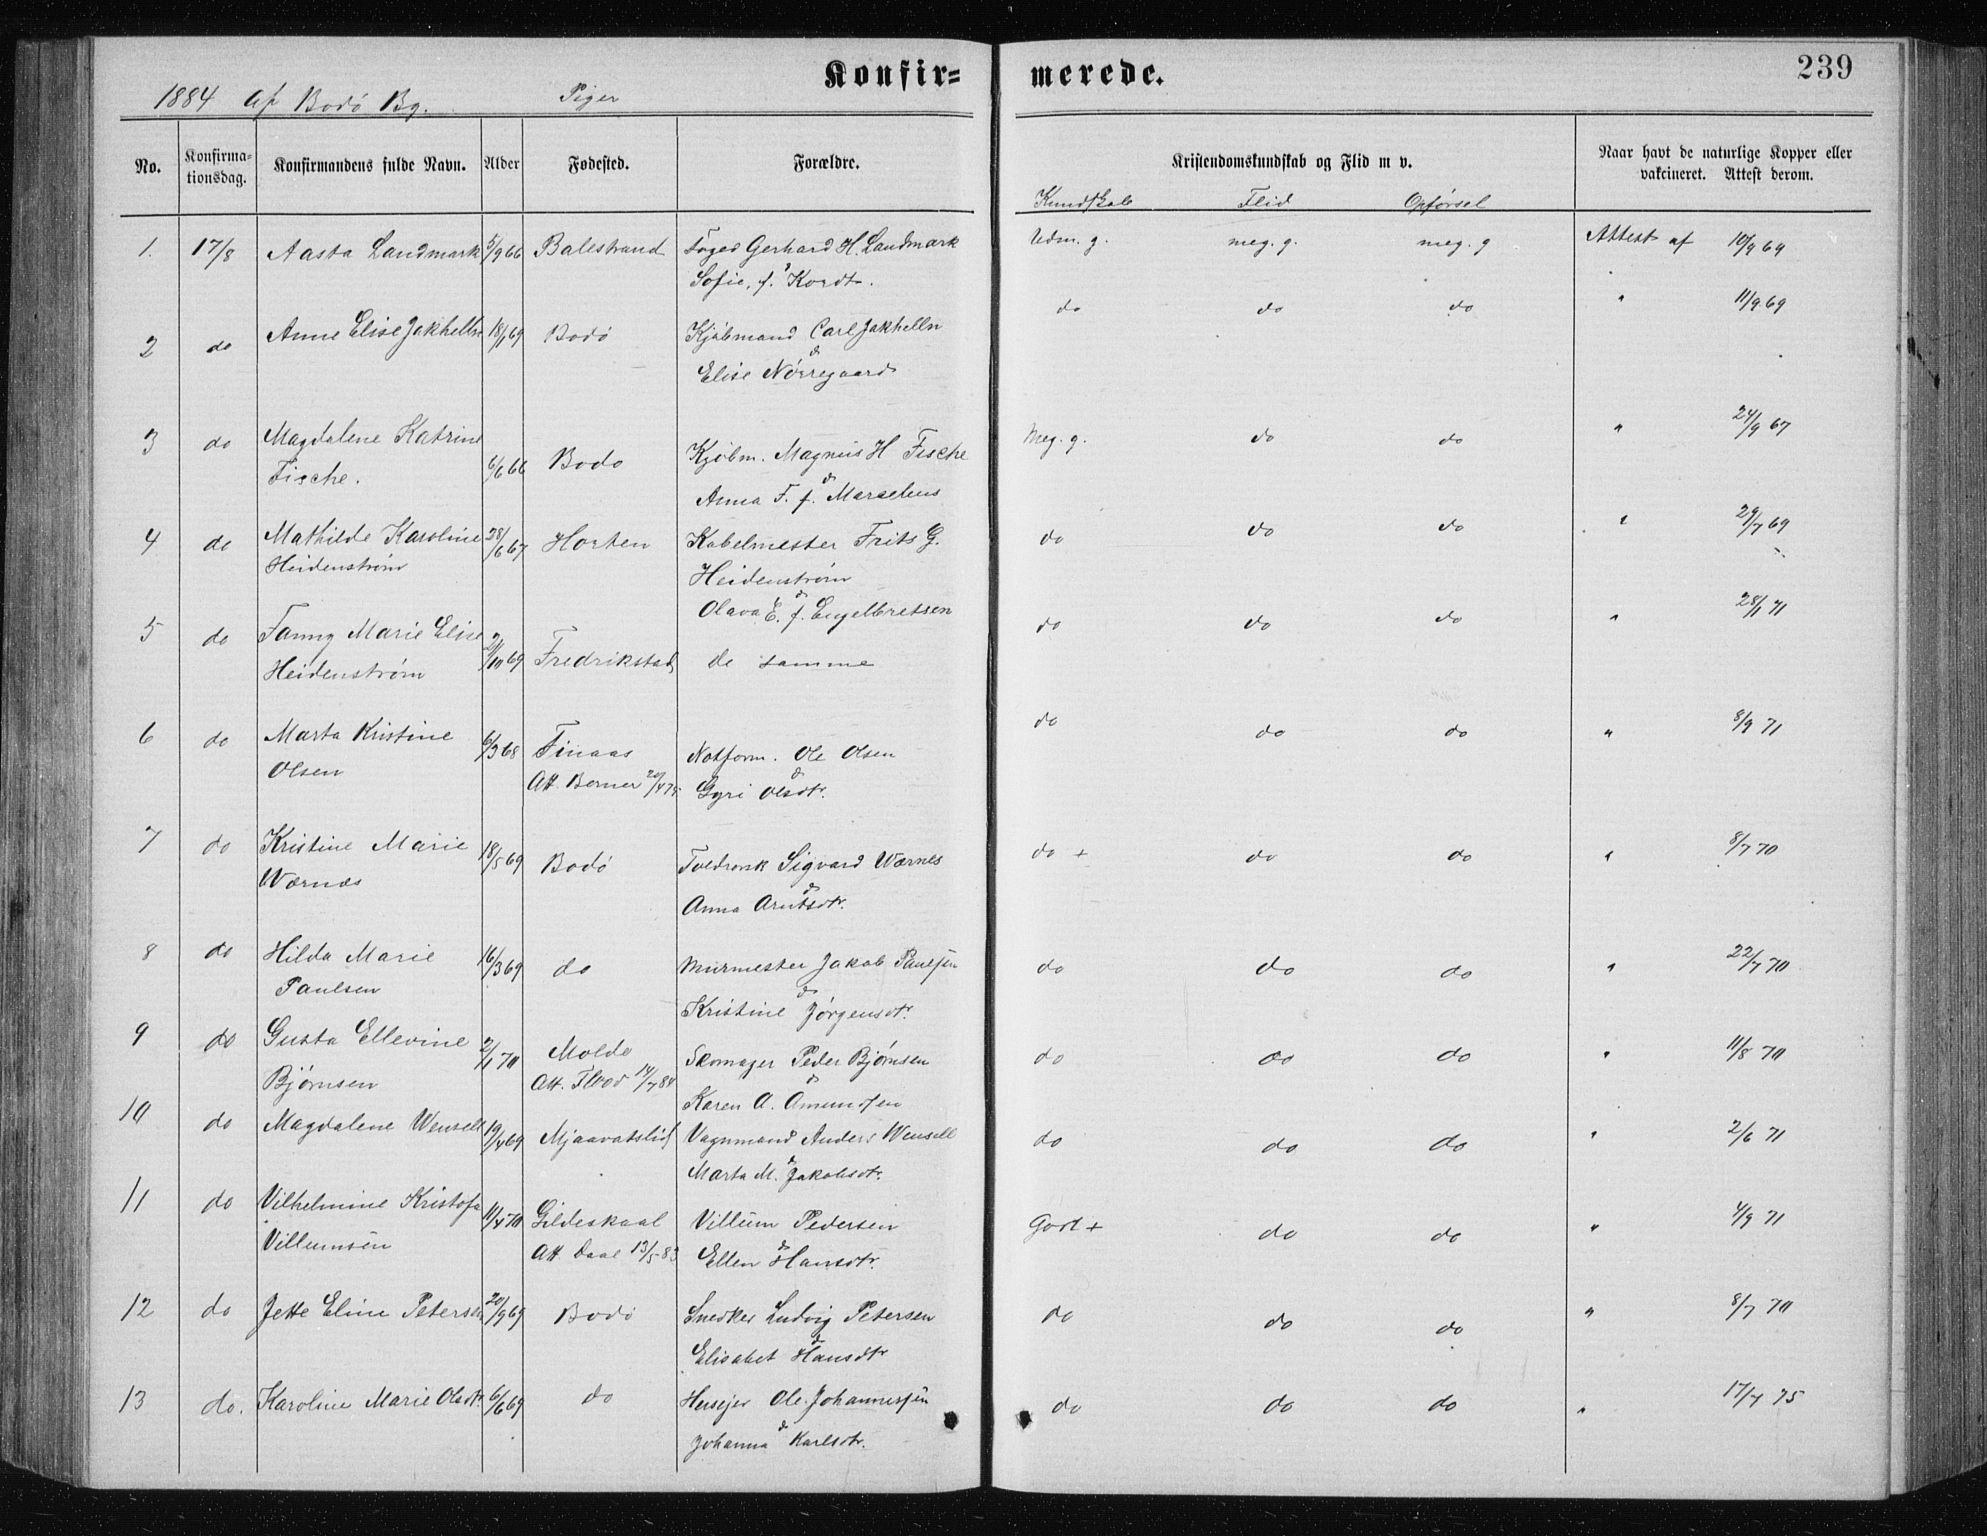 Konfirmerede.
239
1884 af Bodö By. Piger
No. Konfirmationsdag. Konfirmandens fulde Navn. Alder Fødested. Forældre. Kristendomskundskab og Flid m v. Naar havt de naturlige Kopper eller vakcineret. Attest derom.
Kundskab Flid Opförsel
1. 17/8 Aasta Landmark 5/9 66 Balestrand Foged Gerhard H. Landmark Udm. g. meg. g. meg. g Attest af 10/9 69
Sofie, f. Kordt.
2 do Anne Elise Jakhelln 18/1 69 Bodö Kjöbmand Carl Jakhelln do do do " 11/9 69
Elise Nörregaard
3 do Magdalene Katrine 6/6 66 Bodo Kjöbm. Magnus H Fische Meg. g. do do " 24/9 67
Fische. Anna F. f. Marselius
4 do Mathilde Karoline 28/6 67 Horten Kabelmester Frits G. do do do " 29/7 69
Heidenström Heidenström
Olava E. f. Engelbretsen
5 do Fanny Marie Elise 2/10 69 Fredrikstad de samme do do do " 28/1 71
Heidenström
6 do Marta Kristine 6/3 68 Finaas Notform. Ole Olsen do do do " 8/9 71
Olsen Att. Berner 20/4 75 Gyri Olsdtr.
7 do Kristine Marie 18/5 69 Bodö Sigvard Wærnes do + do do " 8/7 70
Wærnæs Anna Arntsdtr.
8 do Hilda Marie 16/3 69 do Murmester Jakob Paulsen do do do " 22/7 70
Paulsen Kristine Jörgensdtr.
9 do Gusta Ellevine 2/1 70 Molde Skomager Peder Bjørnsen do do do " 11/8 70
Bjørnsen Att. Flood 14/7 84 Karen A. Amundsen
10 do Magdalene Wensell 19/4 69 Mjaavatslid Vognmand Anders Wensell do do do " 2/6 71
Marta M. Jakobsdtr.
11 do Vilhelmine Kristofa 11/4 70 Gildeskaal Villum Pedersen Godt + do do " 4/9 71
Villumsen Att Daae 13/5 83 Ellen Hansdtr.
12 do Jette Eline Petersen 20/9 69 Bodö Snedker Ludvig Petersen do do do " 8/7 70
Elisabet Hansdtr
13 do. Karoline Marie Olsdtr. 6/6 69 do Husejer Ole Johannessen do do do " 17/7 75
Johanna Karlsdtr.